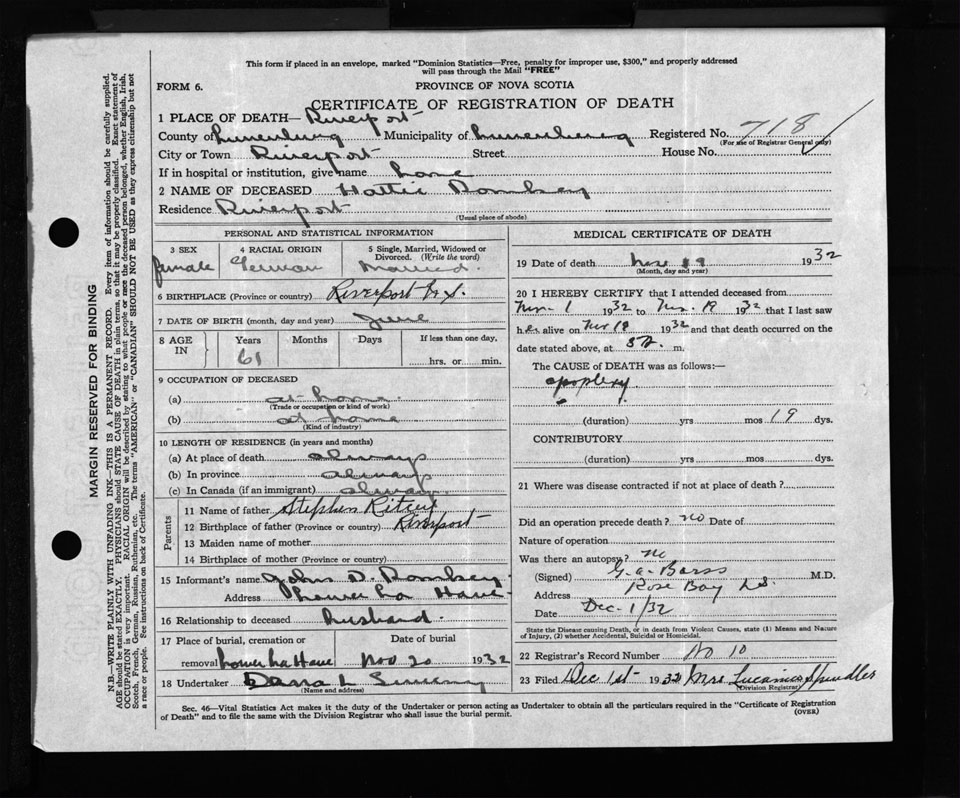 This form if placed in an envelope, marked "Dominion Statistics—Free, penalty for improper use, $300," and properly addressed
will pass through the Mail "FREE"
FORM 6.
PROVINCE OF NOVA SCOTIA
CERTIFICATE OF REGISTRATION OF DEATH
1 PLACE OF DEATH— Riverport
County of Lunenburg Municipality of Lunenburg Registered No. 718
(For use of Registrar General only)
City or Town Riverport Street House No.
If in hospital or institution, give name home
2 NAME OF DECEASED Hattie Romkey
Residence Riverport
(Usual place of abode)
PERSONAL AND STATISTICAL INFORMATION
3 SEX 4 RACIAL ORIGIN 5 Single, Married, Widowed or
Divorced. (Write the word)
female German Married.
6 BIRTHPLACE (Province or country) Riverport N.S.
7 DATE OF BIRTH (month, day and year) June
8 AGE IN Years Months Days If less than one day,
61 hrs. or min.
9 OCCUPATION OF DECEASED
(a) at home
(Trade or occupation or kind of work)
(b) at home
(Kind of industry)
10 LENGTH OF RESIDENCE (in years and months)
(a) At place of death always
(b) In province always
(c) In Canada (if an immigrant) always
Parents
11 Name of father Stephen
12 Birthplace of father (Province or country) Riverport
13 Maiden name of mother
14 Birthplace of mother (Province or country)
15 Informant's name John D. Romkey
Address Lower La Have
16 Relationship to deceased husband.
17 Place of burial, cremation or Date of burial
removal Lower La Have Nov 20 1932
18 Undertaker L
(Name and address)
MEDICAL CERTIFICATE OF DEATH
19 Date of death Nov 19 1932
(Month, day and year)
20 I HEREBY CERTIFY that I attended deceased from
Nov 1 1932 to Nov 19 1932 that I last saw
her alive on Nov 19 1932 and that death occurred on the
date stated above, at m.
The CAUSE of DEATH was as follows:—
apoplexy
(duration) yrs mos 19 dys.
CONTRIBUTORY
(duration) yrs mos dys.
21 Where was disease contracted if not at place of death?
Did an operation precede death? no Date of
Nature of operation
Was there an autopsy? no
(Signed) G. A. Barss M.D.
Address Rose Bay N.S.
Date Dec. 1/32
State the Disease causing Death, or in death from Violent Causes, state (1) Means and Nature
of Injury, (2) whether Accidental, Suicidal or Homicidal.
22 Registrar's Record Number No 10
23 Filed Dec 1st 1932 Mrs. Spindler
(Division Registrar)
Sec. 46—Vital Statistics Act makes it the duty of the Undertaker or person acting as Undertaker to obtain all the particulars required in the "Certificate of Registration
of Death" and to file the same with the Division Registrar who shall issue the burial permit.
(OVER)
MARGIN RESERVED FOR BINDING
N.B.—WRITE PLAINLY WITH UNFADING INK—THIS IS A PERMANENT RECORD. Every item of information should be carefully supplied.
AGE should be stated EXACTLY. PHYSICIANS should STATE CAUSE OF DEATH in plain terms, so that it may be properly classified. Exact statement of
OCCUPATION is very important. RACIAL ORIGIN will be described by stating to what people or race the deceased person belonged, whether English, Irish,
Scotch, French, German, Russian, Ruthenian, etc. The terms "AMERICAN" or "CANADIAN" SHOULD NOT BE USED as they express citizenship but not
a race or people. See instructions on back of Certificate.